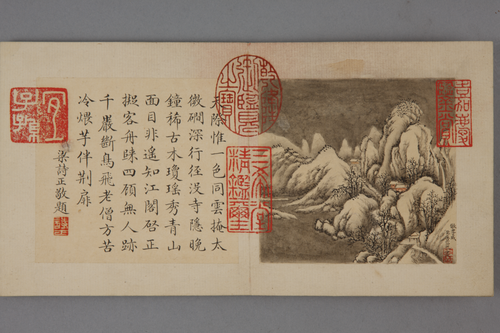 惟一色同雲掩太
微磵深行徑没寺隱晚
鐘稀古木瓊瑶秀青山
面目非遥知江閣啓正
擬客舟歸四顧無人跡
千巖斷鳥飛老僧方苦
冷煨芋伴荆扉
梁詩正敬題
宜子孫
三希堂精鑑璽